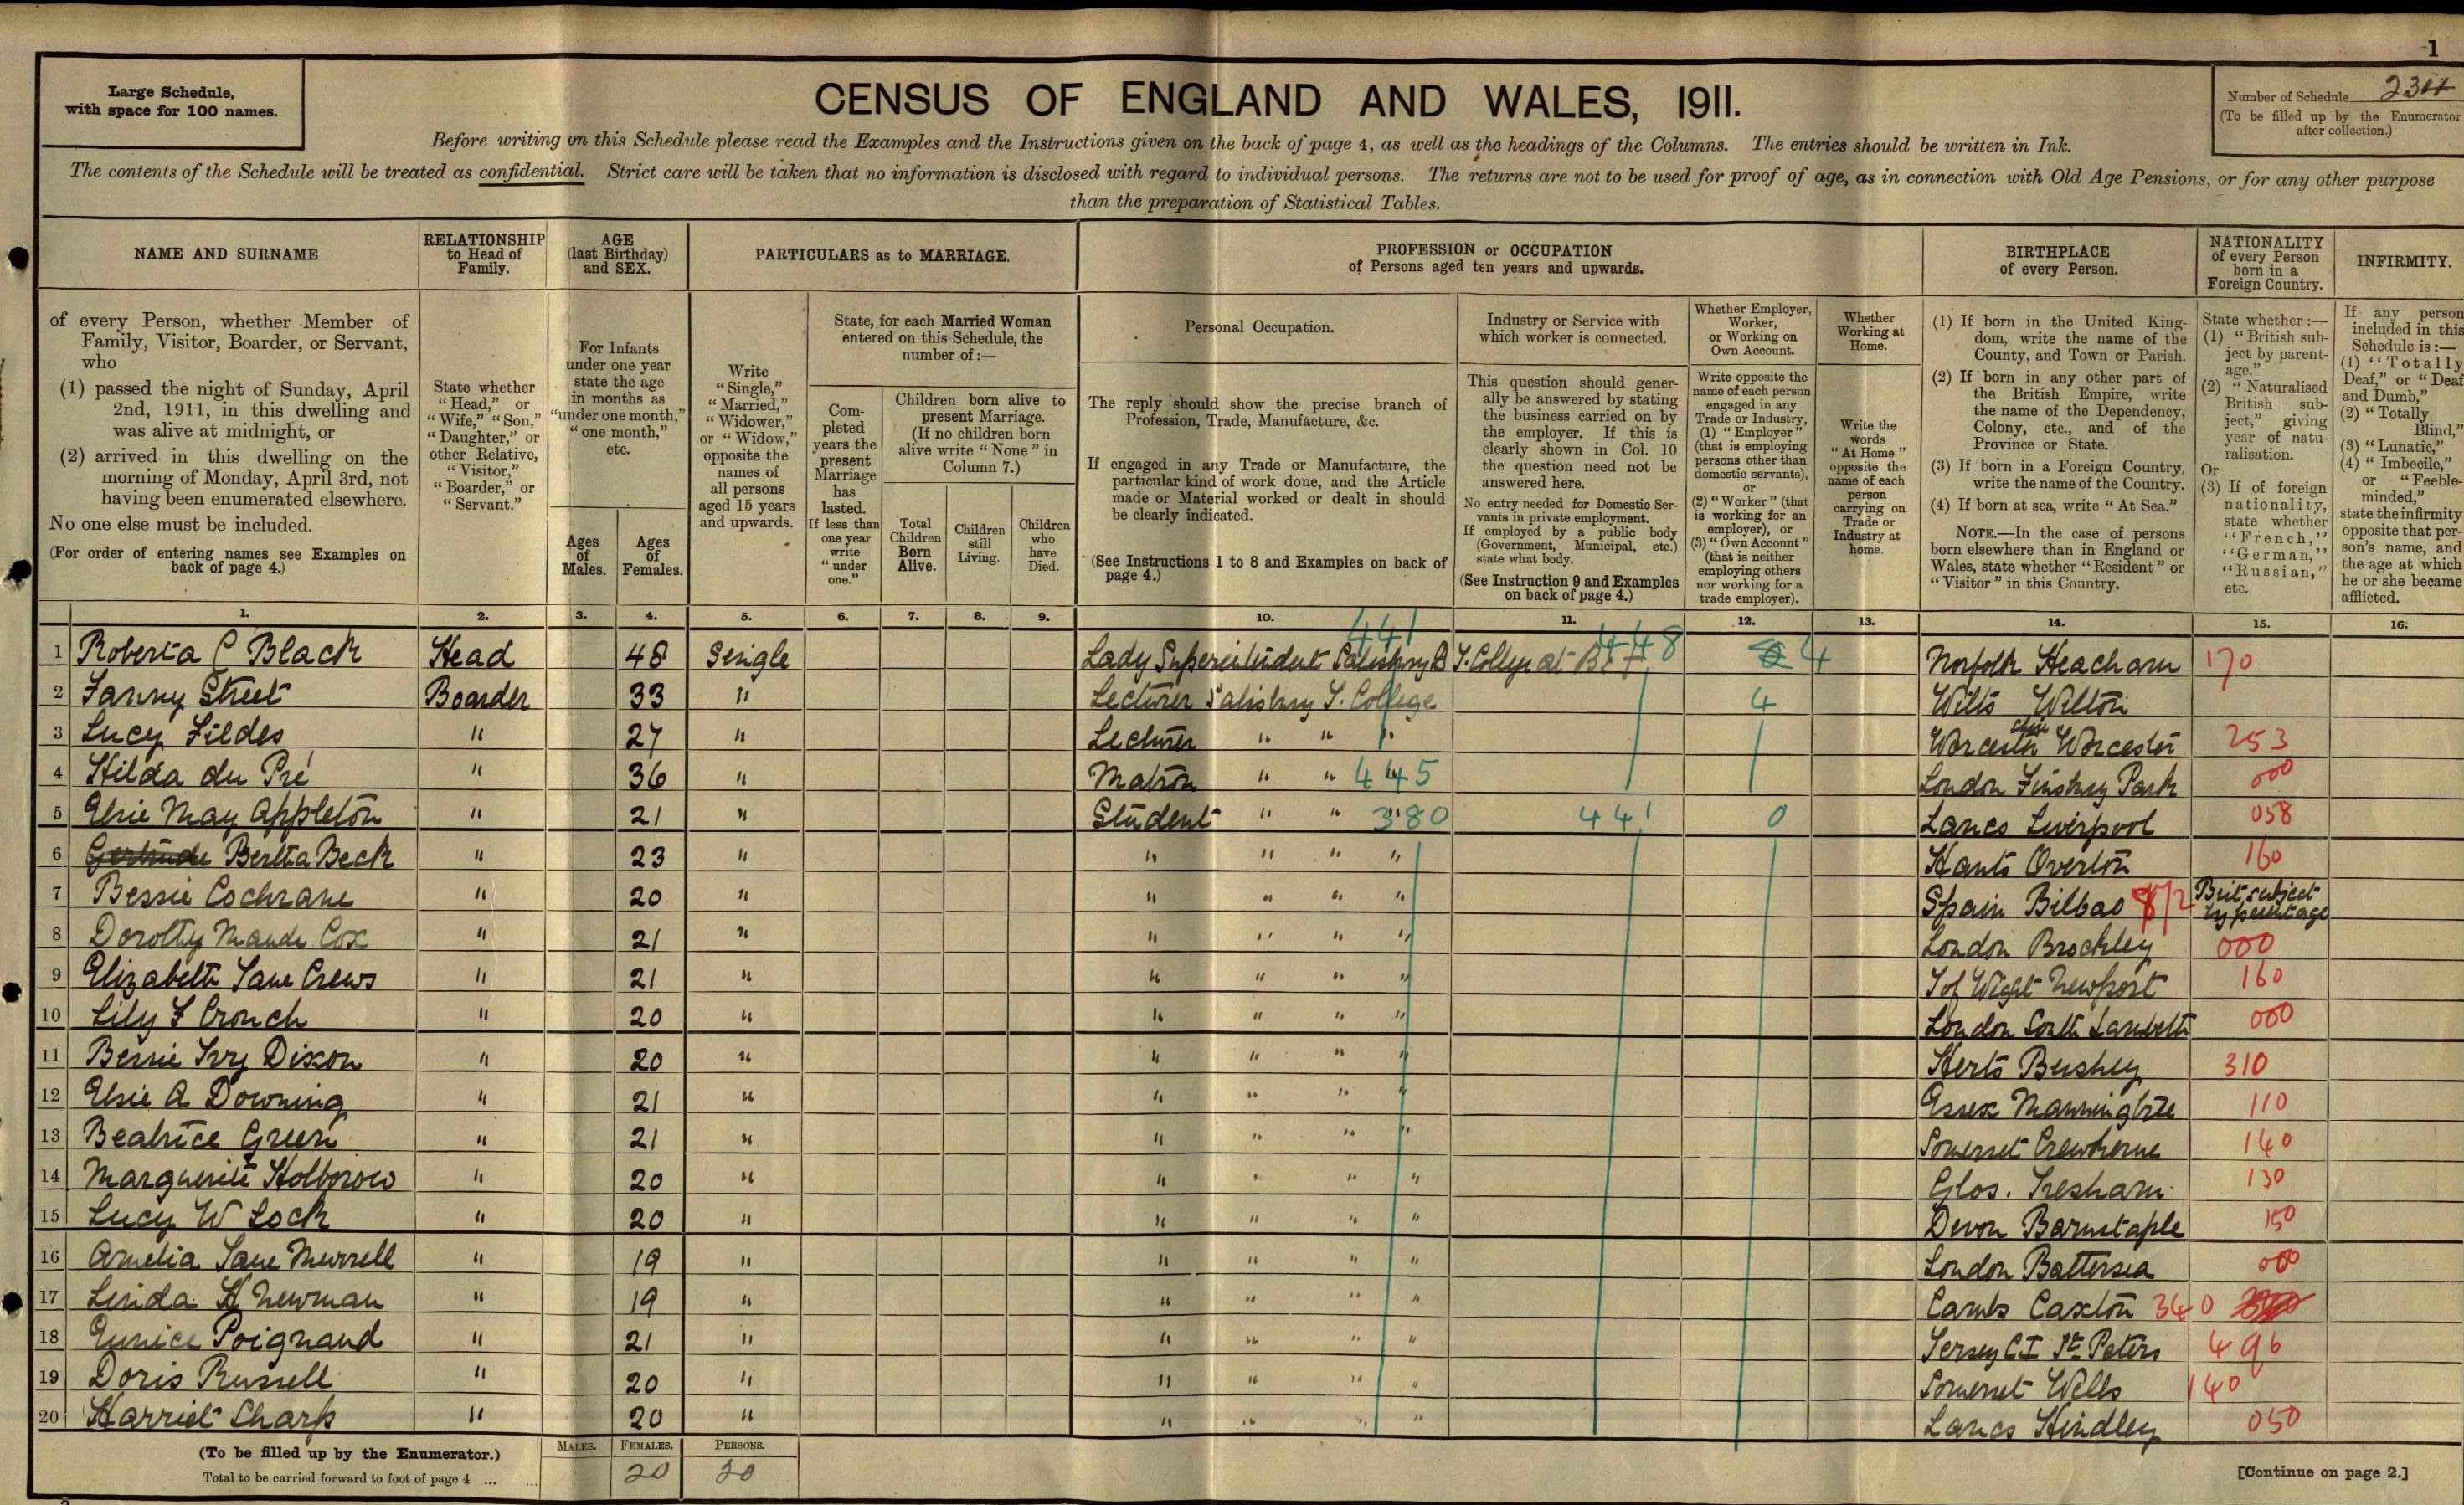 1
Large Schedule,
with space for 100 names.
CENSUS OF ENGLAND AND WALES, 1911.
Number of Schedule 234
(To be filled up by the Enumerator
after collection.)
Before writing on this Schedule please read the Examples and the Instructions given on the back of page 4, as well as the headings of the Columns. The entries should be written in Ink.
The contents of the Schedule will be treated as confidential. Strict care will be taken that no information is disclosed with regard to individual persons. The returns are not to be used for proof of age, as in connection with Old Age Pensions, or for any other purpose
than the preparation of Statistical Tables.
NAME AND SURNAME
of every Person, whether Member of
Family, Visitor, Boarder, or Servant,
who
(1) passed the night of Sunday, April
2nd, 1911, in this dwelling and
was alive at midnight, or
(2) arrived in this dwelling on the
morning of Monday, April 3rd, not
having been enumerated elsewhere.
No one else must be included.
(For order of entering names see Examples on
back of page 4.)
RELATIONSHIP
to Head of
Family.
State whether
"Head," or
"Wife," "Son,"
"Daughter," or
other Relative,
"Visitor,"
"Boarder," or
"Servant."
AGE
(last Birthday)
and SEX.
For Infants
under one year
state the age
in months as
"under one month,"
"one month,"
etc.
Ages
of
Males.
Ages
of
Females.
PARTICULARS as to MARRIAGE.
Write
"Single,"
"Married,"
"Widower,"
or "Widow,"
opposite the
names of
all persons
aged 15 years
and upwards.
State, for each Married Woman
entered on this Schedule, the
number of:—
Com-
pleted
years the
present
Marriage
has
lasted.
If less than
one year
write
"under
one."
Children born alive to
present Marriage.
(If no children born
alive write "None" in
Column 7.)
Total
Children
Born
Alive.
Children
still
Living.
Children
who
have
Died.
PROFESSION or OCCUPATION
of Persons aged ten years and upwards.
Personal Occupation.
The reply should show the precise branch of
Profession, Trade, Manufacture, &c.
If engaged in any Trade or Manufacture, the
particular kind of work done, and the Article
made or Material worked or dealt in should
be clearly indicated.
(See Instructions 1 to 8 and Examples on back of
page 4.)
Industry or Service with
which worker is connected.
This question should gener-
ally be answered by stating
the business carried on by
the employer. If this is
clearly shown in Col. 10
the question need not be
answered here.
No entry needed for Domestic Ser-
vants in private employment.
If employed by a public body
(Government, Municipal, etc.)
state what body.
(See Instruction 9 and Examples
on back of page 4.)
Whether Employer,
Worker,
or Working on
Own Account.
Write opposite the
name of each person
engaged in any
Trade or Industry,
(1) "Employer"
(that is employing
persons other than
domestic servants),
or
(2) "Worker" (that
is working for an
employer), or
(3) "Own Account"
(that is neither
employing others
nor working for a
trade employer).
Whether
Working at
Home.
Write the
words
"At Home"
opposite the
name of each
person
carrying on
Trade or
Industry at
home.
BIRTHPLACE
of every Person.
(1) If born in the United King-
dom, write the name of the
County, and Town or Parish.
(2) If born in any other part of
the British Empire, write
the name of the Dependency,
Colony, etc., and of the
Province or State.
(3) If born in a Foreign Country,
write the name of the Country.
(4) If born at sea, write "At Sea."
NOTE.—In the case of persons
born elsewhere than in England or
Wales, state whether "Resident" or
"Visitor" in this Country.
NATIONALITY
of every Person
born in a
Foreign Country.
State whether:—
(1) "British sub-
ject by parent-
age."
(2) "Naturalised
British sub-
ject," giving
year of natu-
ralisation.
Or
(3) If of foreign
nationality,
state whether
"French,"
"German,"
"Russian,"
etc.
INFIRMITY.
If any person
included in this
Schedule is:—
(1) "Totally
Deaf," or "Deaf
and Dumb,"
(2) "Totally
Blind,"
(3) "Lunatic,"
(4) "Imbecile,"
or "Feeble-
minded,"
state the infirmity
opposite that per-
son's name, and
the age at which
he or she became
afflicted.
1. 2. 3. 4. 5. 6. 7. 8. 9. 10. 11. 12. 13. 14. 15. 16.
1 Roberta C Black Head 48 Single Lady Superintendent Salisbury D T. College 441 448 4 Norfolk Heacham 170
2 Fanny Street Boarder 33 " Lecturer Salisbury T. College 4 Wilts Wilton
3 Lucy Fildes " 27 " Lecturer " " " Worcestershire Worcester 253
4 Hilda du Pré " 36 " Matron " " 445 London Finsbury Park 000
5 Elsie May Appleton " 21 " Student " " " 380 441 0 Lancs Liverpool 058
6 Gertrude Bertha Beck " 23 " " " " " Hants Overton 160
7 Bessie Cochrane " 20 " " " " " Spain Bilbao Brit. subject by parentage
8 Dorothy Maude Cox " 21 " " " " " London Brockley 000
9 Elizabeth Jane Crews " 21 " " " " " I of Wight Newport 160
10 Lily F Crouch " 20 " " " " " London South Lambeth 000
11 Bessie Ivy Dixon " 20 " " " " " Herts Bushey 310
12 Elsie A Downing " 21 " " " " " Essex Manningtree 110
13 Beatrice Green " 21 " " " " " Somerset Crewkerne 140
14 Marguerite Holborow " 20 " " " " " Glos. Tresham 130
15 Lucy W Lock " 20 " " " " " Devon Barnstaple 150
16 Amelia Jane Murrell " 19 " " " " " London Battersea 000
17 Linda H Newman " 19 " " " " " Cambs Caxton 340
18 Eunice Poignand " 21 " " " " " Jersey C I St. Peters 496
19 Doris Russell " 20 " " " " " Somerset Wells 140
20 Harriet Sharp " 20 " " " " " Lancs Hindley 050
(To be filled up by the Enumerator.)
Total to be carried forward to foot of page 4 ... ...
MALES. FEMALES. PERSONS.
20 20
[Continue on page 2.]